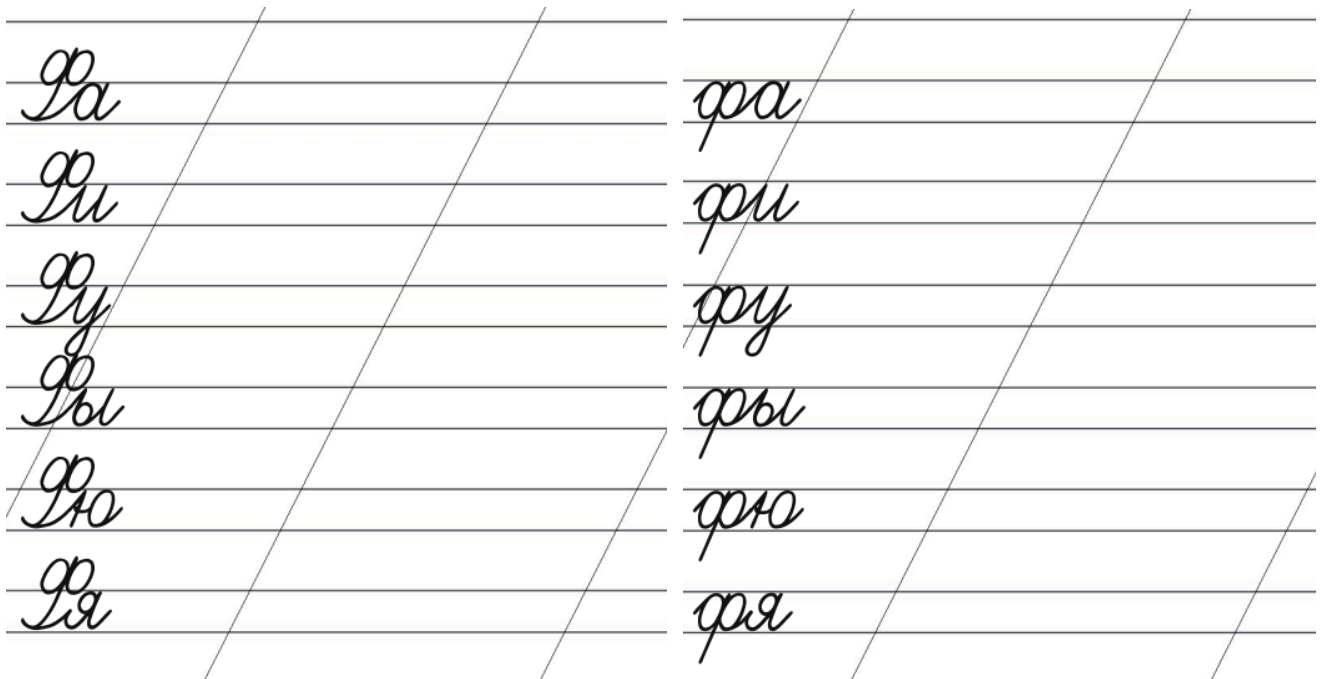 Фа
Фи
Фу
Фы
Фю
Фя
фа
фи
фу
фы
фю
фя